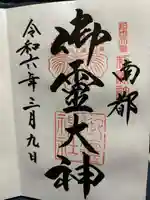 南都
御靈大神
令和六年三月九日